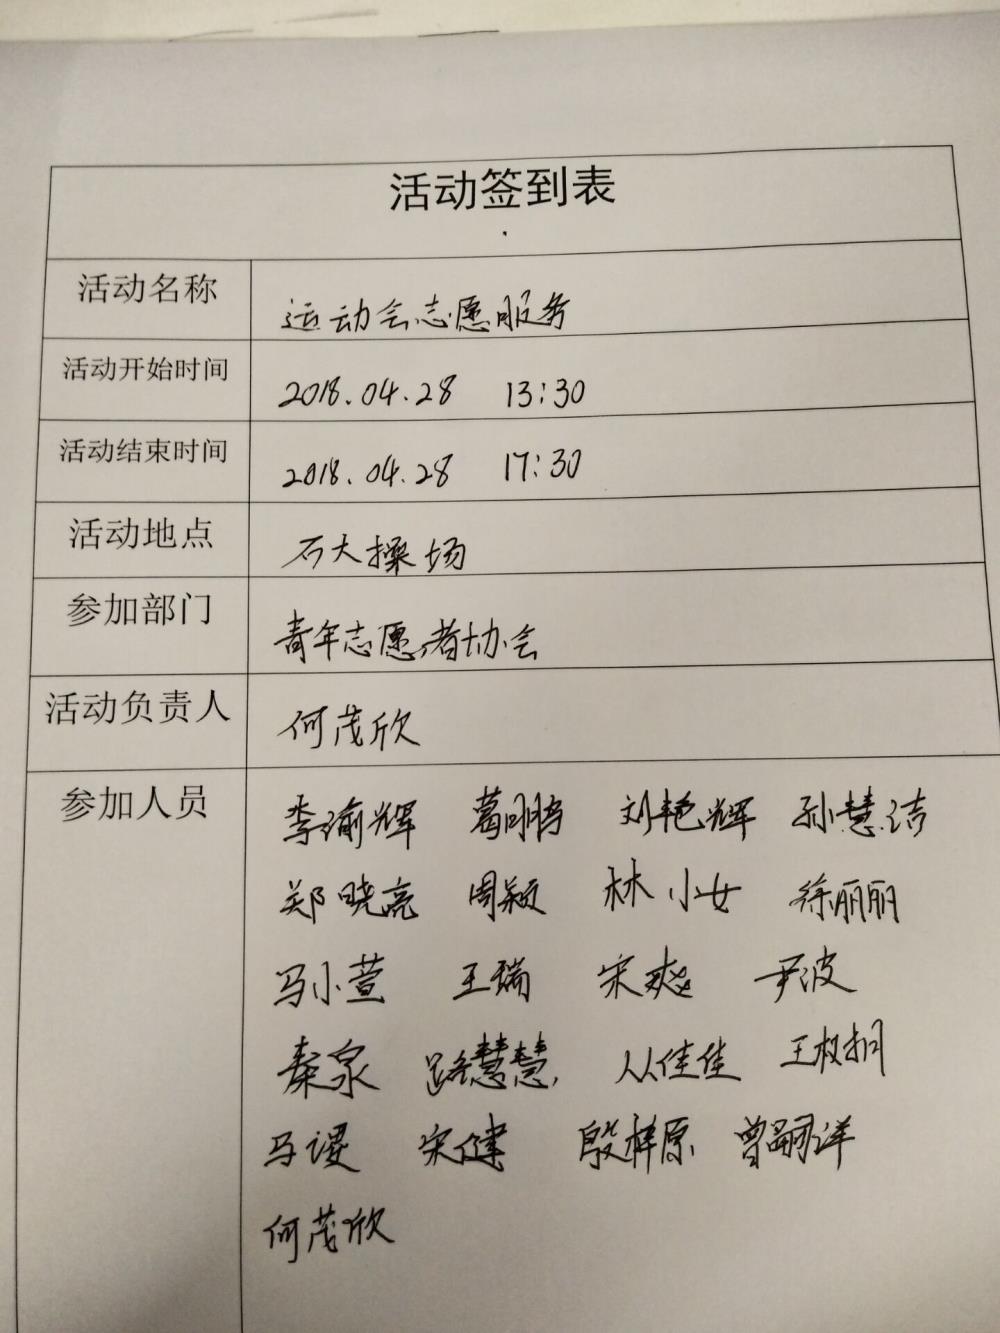 活动签到表
活动名称 运动会志愿服务
活动开始时间 2018.04.28 13:30
活动结束时间 2018.04.28 17:30
活动地点 石大操场
参加部门 青年志愿者协会
活动负责人 何茂欣
参加人员 李瑜辉 葛明鹏 刘艳辉 孙慧洁
郑晓亮 周颖 林小女 徐丽丽
马小萱 王瑞 宋爽 尹波
秦泉 路慧慧 从佳佳 王权
马谡 宋健 殷梓原 曾嗣洋
何茂欣